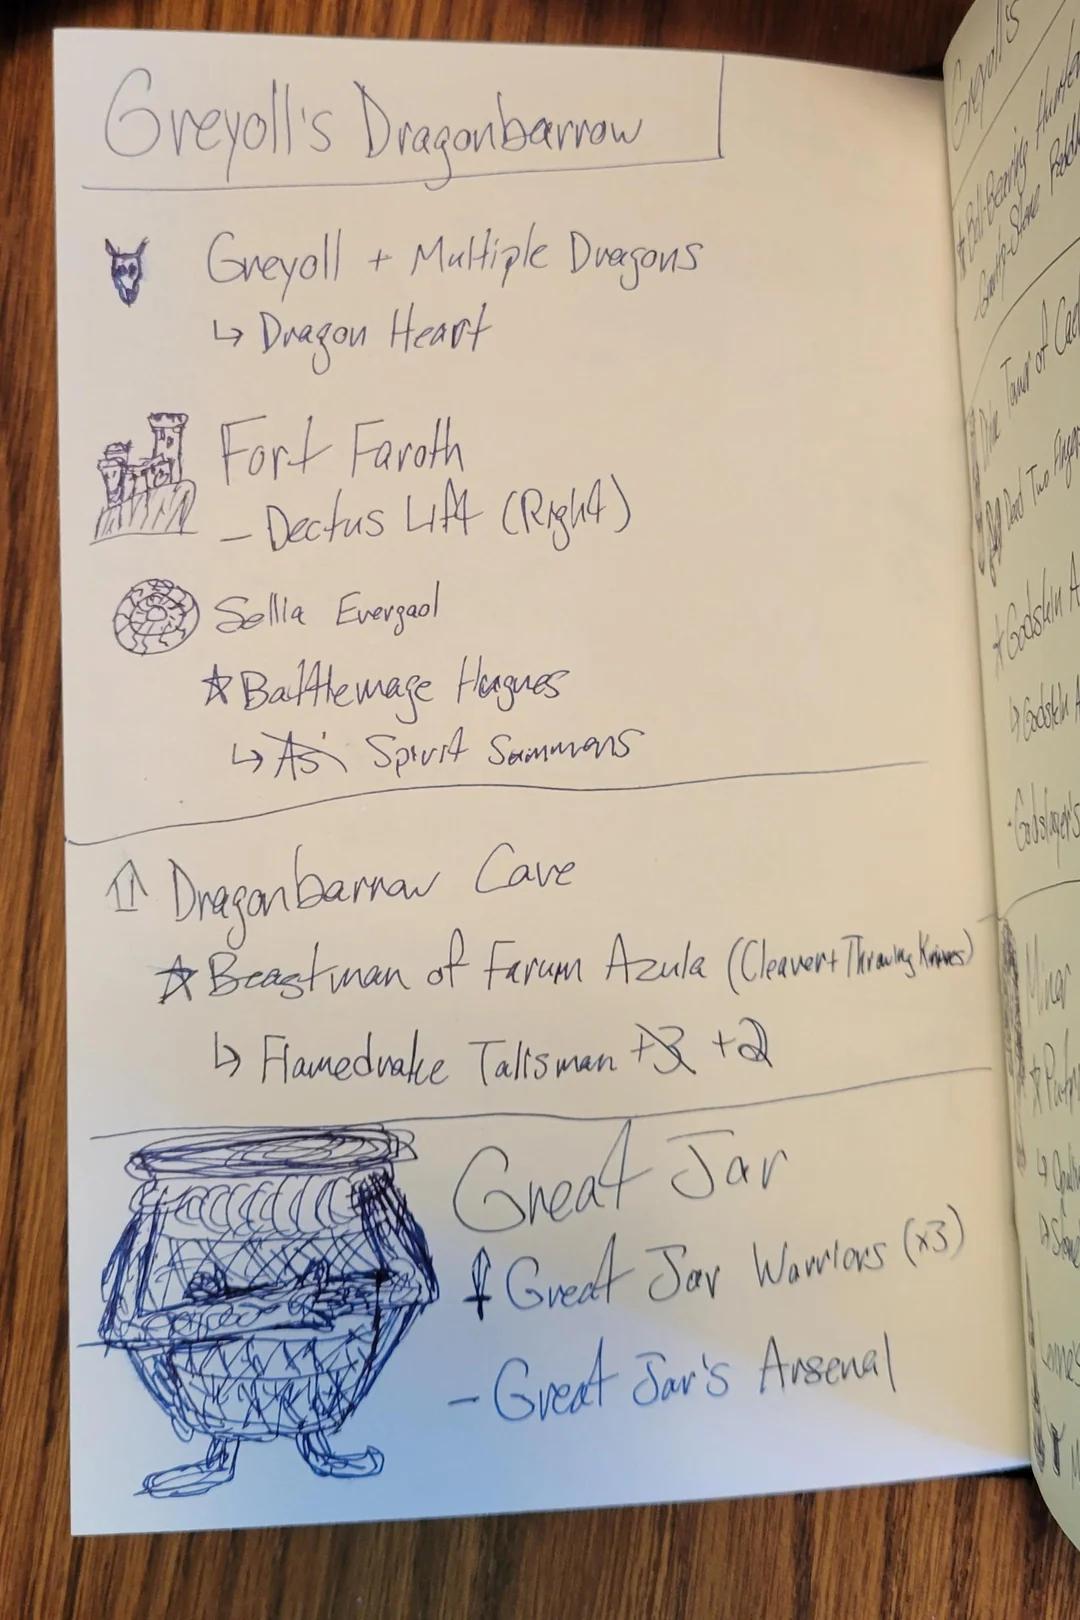 Greyoll's Dragonbarrow
Greyoll + Multiple Dragons
↳ Dragon Heart
Fort Faroth
- Dectus Lift (Right)
Sellia Evergaol
☆ Battlemage Hugues
↳ As Spirit Summons
⇧ Dragonbarrow Cave
☆ Beastman of Farum Azula (Cleaver + Throwing Knives)
↳ Flamedrake Talisman +3 +2
Great Jar
Great Jar Warriors (x3)
- Great Jar's Arsenal
Greyoll's
☆ Bell-Bearing Hunter
Tower of Cae
Dead Two Finger
☆ Godskin A
↳ Godskin
- Godslayer's
Minor